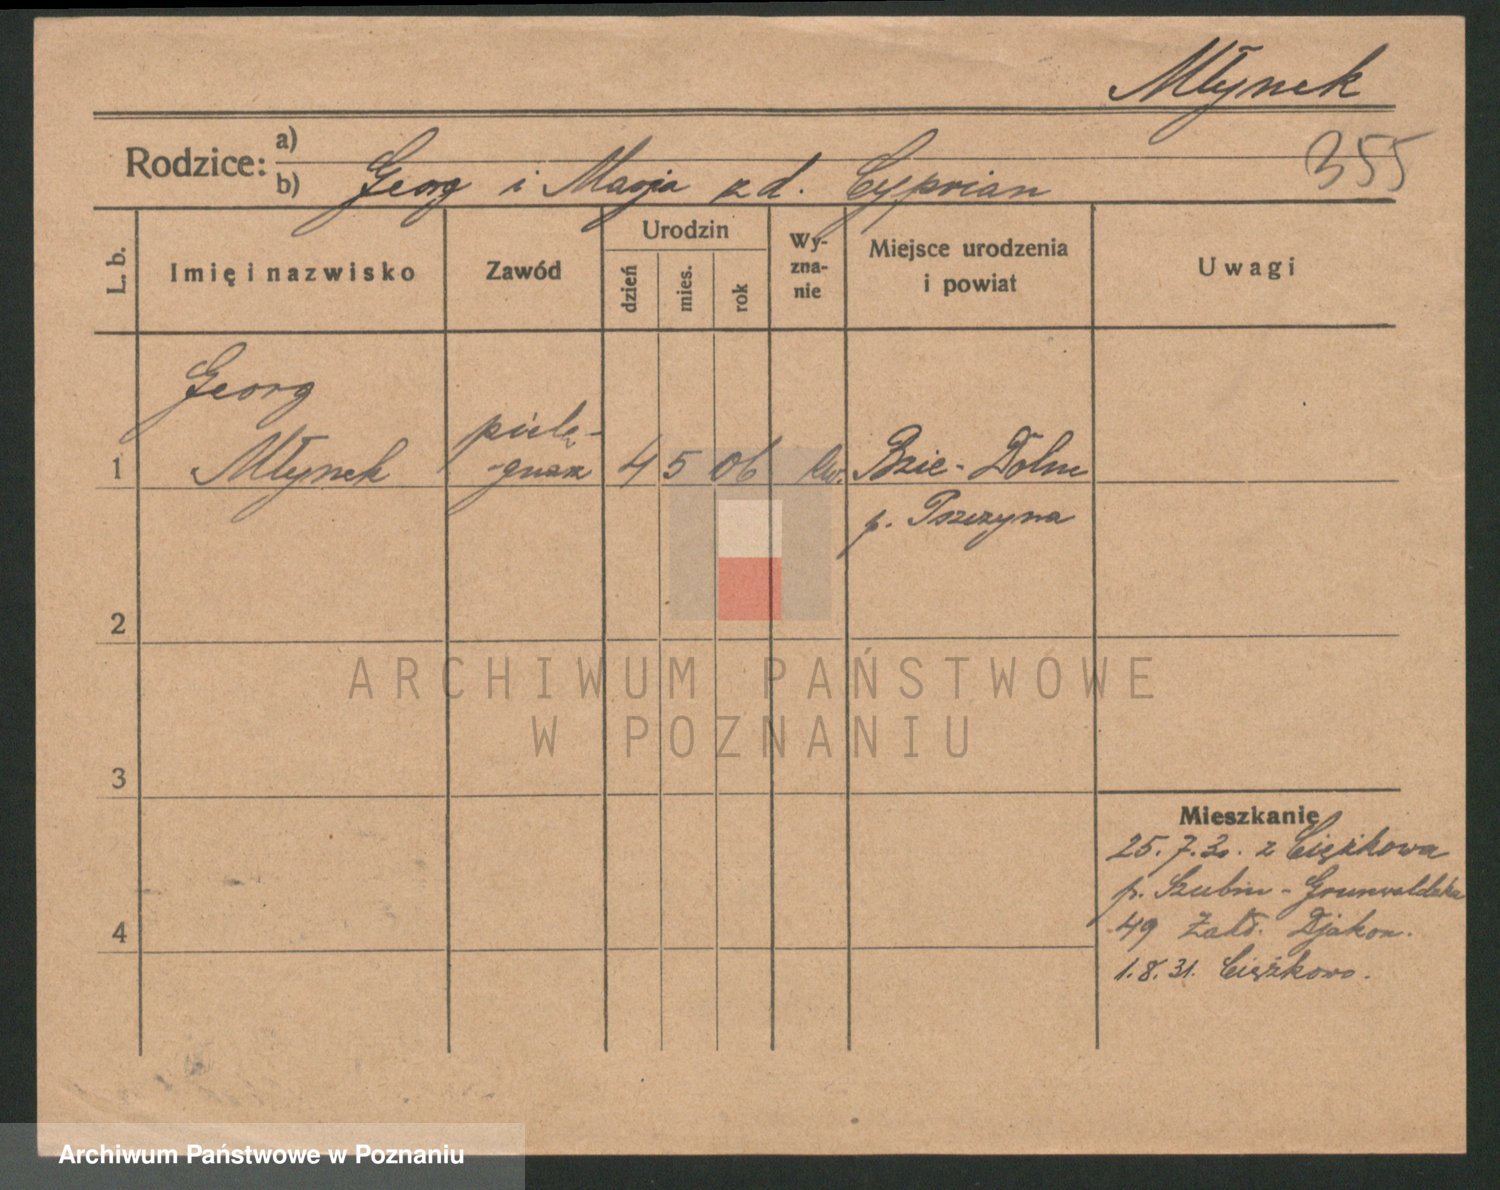 Młynek
355
Rodzice: a)
b) Georg i Marja z d. Cyprian
L. b.
Imię i nazwisko
Zawód
Urodzin
dzień
mies.
rok
Wy-
zna-
nie
Miejsce urodzenia
i powiat
Uwagi
Georg
1 Młynek
pielę-
-gniarz
4 5 06
Bzie-Dolne
p. Pszczyna
2
3
4
Mieszkanie
25.7.30. z Ciężkowa
p. Szubin - Grunwaldzka
49 Zakł. Djakon.
1.8.31. Ciężkowo.
ARCHIWUM PAŃSTWOWE
W POZNANIU
Archiwum Państwowe w Poznaniu